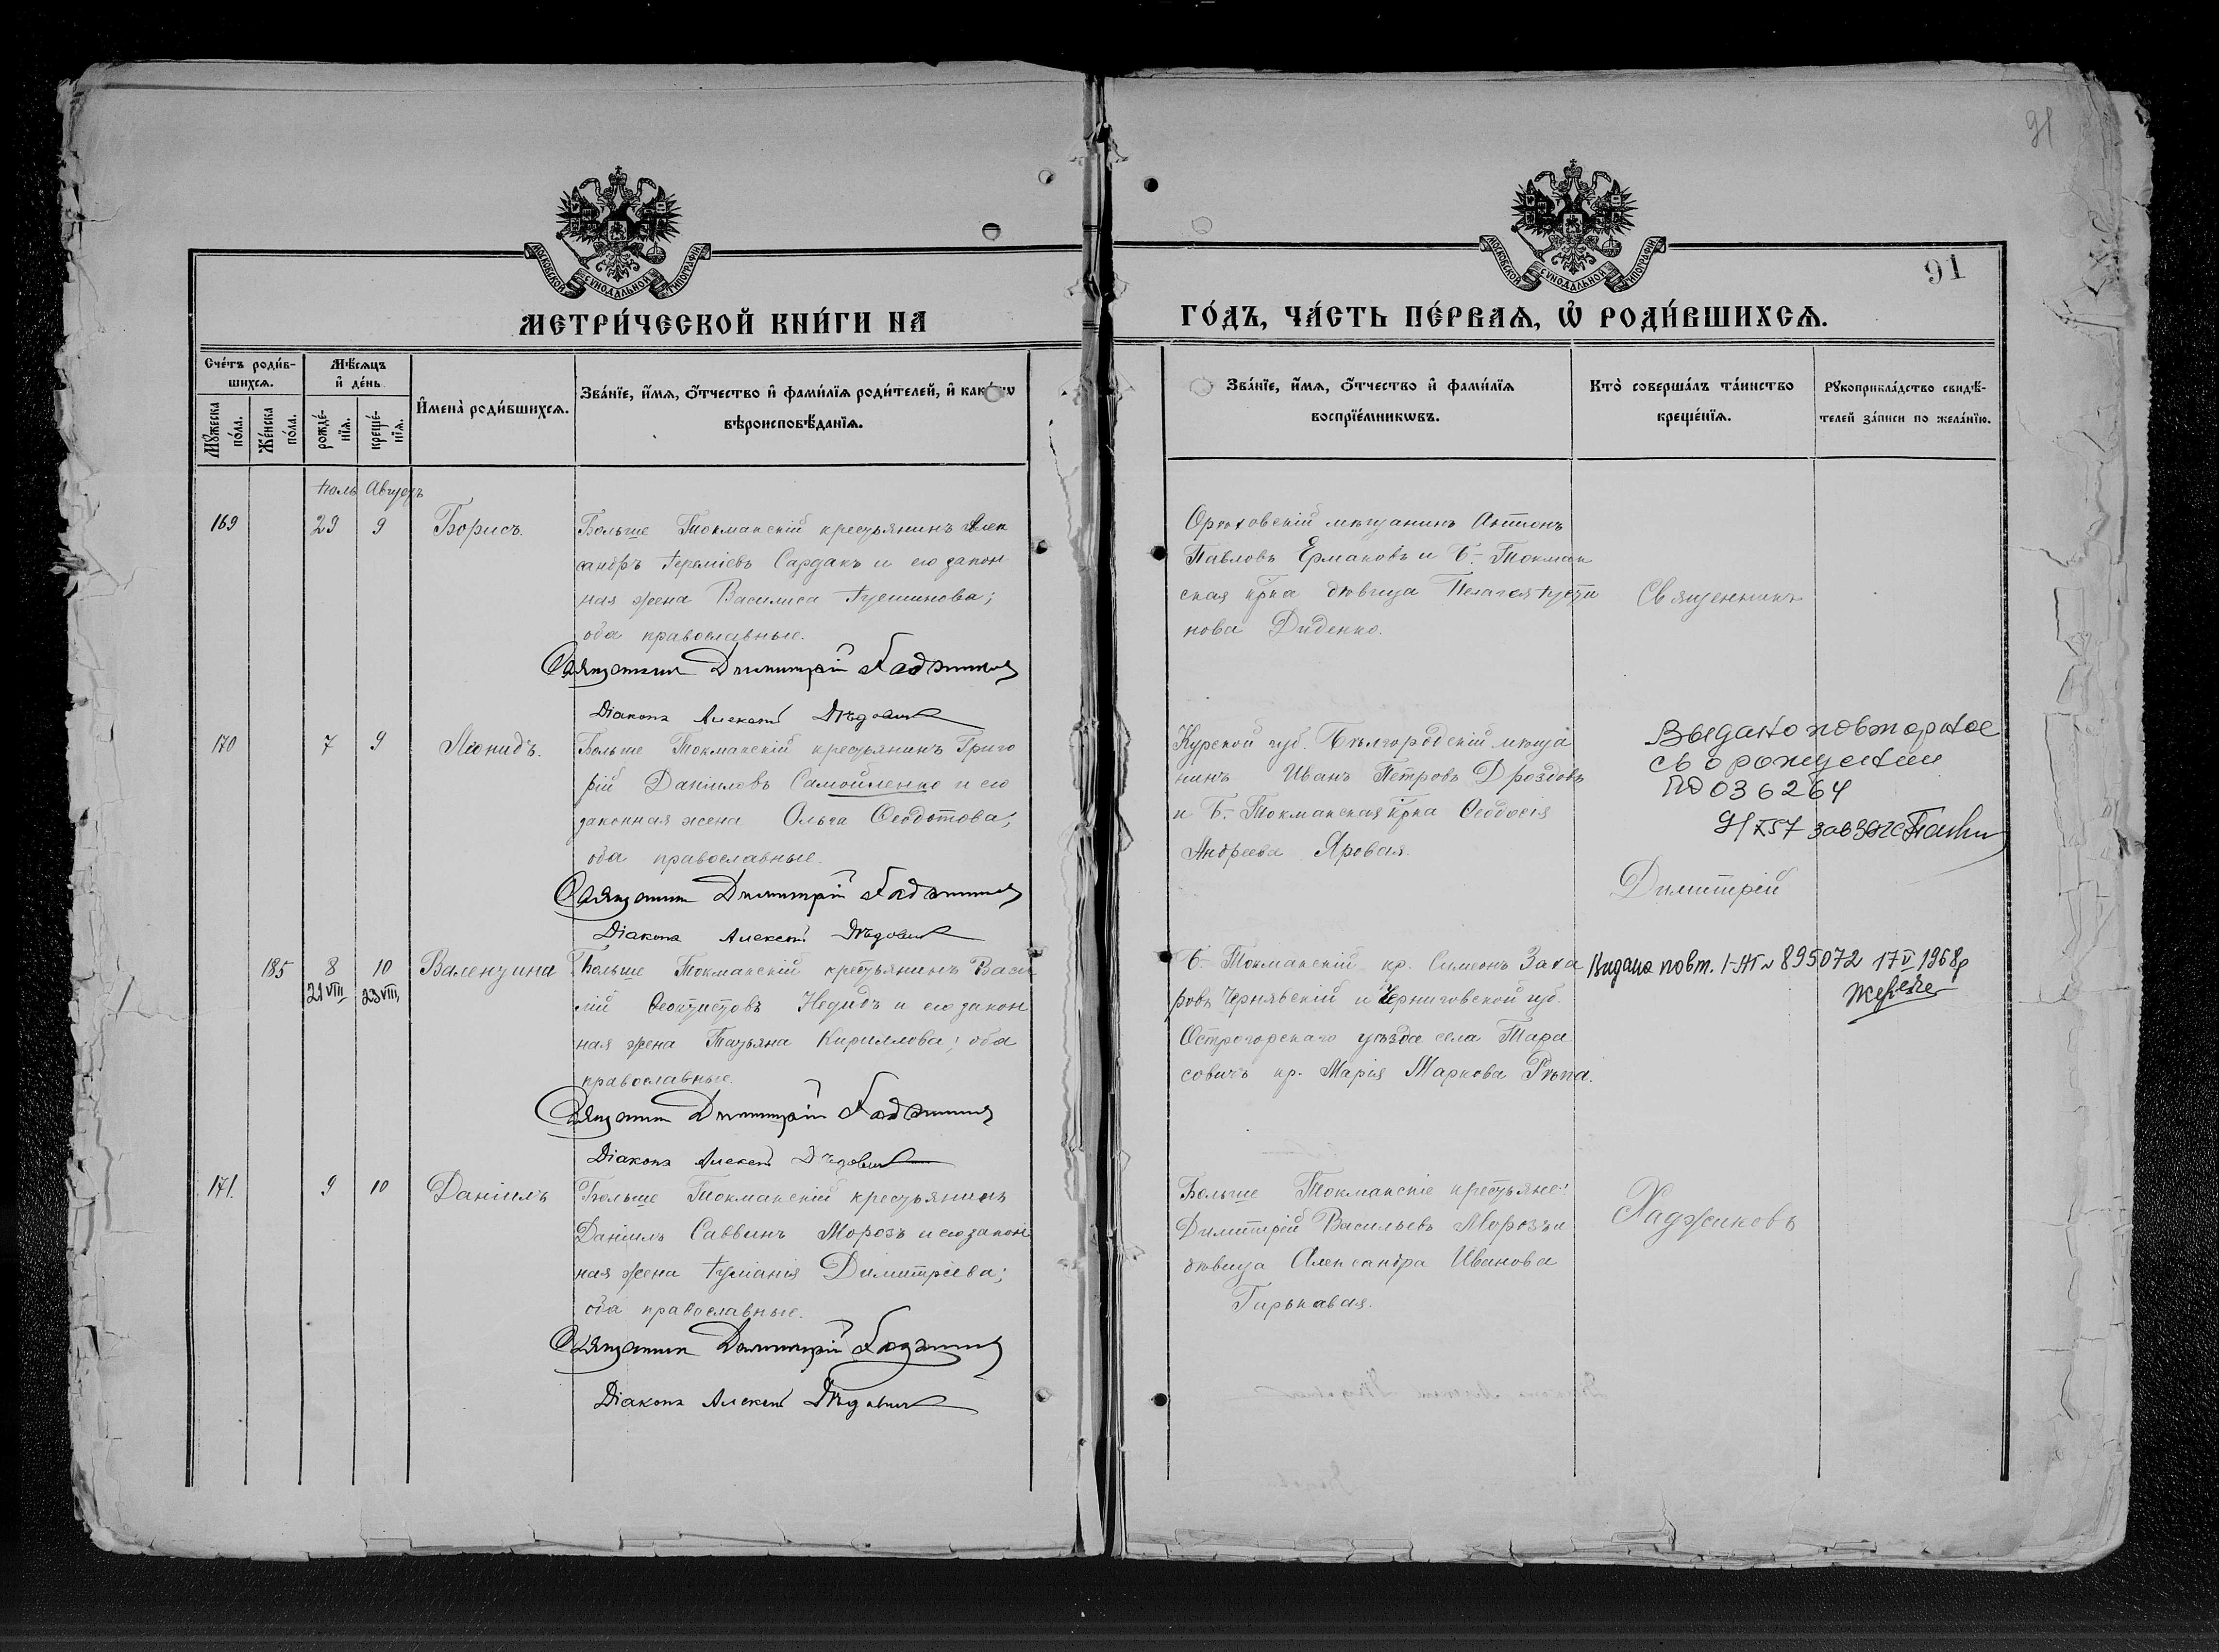 91
МОСКОВСКОЙ СѴНОДАЛЬНОЙ ТИПОГРАФІИ
МОСКОВСКОЙ СѴНОДАЛЬНОЙ ТИПОГРАФІИ
91
МЕТРИ́ЧЕСКОЙ КНИ́ГИ НА
ГО́ДЪ, ЧА́СТЬ ПЕ́РВАѦ, Ѡ҆ РОДИ́ВШИХСѦ.
Сче́тъ роди́в-
шихсѧ.
Мꙋ́жеска по́ла.
Же́нска по́ла.
Мѣ́сѧцъ
и҆ де́нь
рожде́-
нїѧ.
креще́-
нїѧ.
И҆мена̀ роди́вшихсѧ.
Зва́нїе, и҆́мѧ, ѻ҆́тчество и҆ фами́лїѧ роди́телей, и҆
вѣроисповѣ́данїѧ.
Зва́нїе, и҆́мѧ, ѻ҆́тчество и҆ фами́лїѧ
воспрїе́мникѡвъ.
Кто̀ соверша́лъ та́инство
креще́нїѧ.
Рꙋкоприкла́дство свидѣ́-
телей за́писи по жела́нїю.
Іюль Августъ
169 29 9 Борисъ.
Больше Токмакскій крестьянинъ Алек
сандръ Іереміевъ Сардакъ и его закон
ная жена Василиса Іустинова;
оба православные.
Священникъ Димитрій Хаджиновъ
Діаконъ Алексѣй
Орѣховскій мѣщанинъ Антонъ
Павловъ Ермаковъ и Б. Токмак
ская кр-ка дѣвица Пелагея Іусти
нова Диденко.
Священникъ
170 7 9 Леонидъ.
Больше Токмакскій крестьянинъ Григо
рій Даніиловъ Самойленко и его
законная жена Ольга Ѳеодотова;
оба православные.
Священникъ Димитрій Хаджиновъ
Діаконъ Алексѣй
Курской губ. Бѣлгородскій мѣща
нинъ Иванъ Петровъ Дроздовъ
и Б. Токмакская кр-ка Ѳеодосія
Андреева Яровая.
Выдано повторное
св о рождении
036264
Димитрій
185 8 10 Валентина
21 VIII 23 VIII
Больше Токмакскій крестьянинъ Васи
лій Ѳеоктистовъ Недидъ и его закон
ная жена Татьяна Кириллова; оба
православные.
Священникъ Димитрій Хаджиновъ
Діаконъ Алексѣй
Б. Токмакскій кр. Симеонъ Заха
ровъ Чернявскій и Черниговской губ.
Острогорскаго уѣзда села Тара
совичъ кр. Марія Маркова Рѣпа.
Видано повт. 895072 17 V 1968р
171. 9 10 Даніилъ
Больше Токмакскій крестьянинъ
Даніилъ Саввинъ Морозъ и его закон
ная жена Іуліанія Димитріева;
оба православные.
Священникъ Димитрій Хаджиновъ
Діаконъ Алексѣй
Больше Токмакскіе крестьяне:
Димитрій Васильевъ Морозъ и
дѣвица Александра Иванова
Гирькавая.
Хаджиновъ